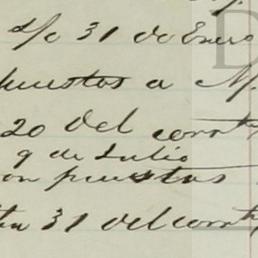 s/c 31 de Enero
puestas a M.
20 del corrte
9 de Julio
on puestas
31 del corrte